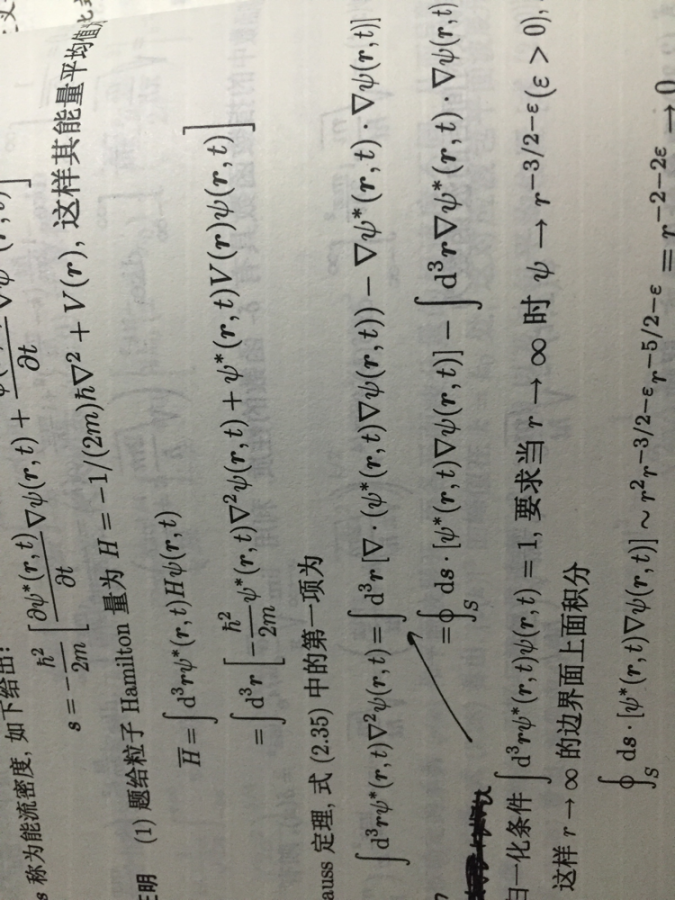 s 称为能流密度, 如下给出:
s = -\frac{ħ^2}{2m} [ \frac{∂ψ^*(r,t)}{∂t} ∇ψ(r,t) + \frac{}{∂t} ]
(1) 题给粒子 Hamilton 量为 H = -1/(2m)ħ∇^2 + V(r), 这样其能量平均值
\overline{H} = ∫ d^3rψ^*(r,t)Hψ(r,t)
= ∫ d^3r [ -\frac{ħ^2}{2m}ψ^*(r,t)∇^2ψ(r,t) + ψ^*(r,t)V(r)ψ(r,t) ]
auss 定理, 式 (2.35) 中的第一项为
∫ d^3rψ^*(r,t)∇^2ψ(r,t) = ∫ d^3r [∇·(ψ^*(r,t)∇ψ(r,t)) - ∇ψ^*(r,t)·∇ψ(r,t)]
= ∮_S ds·[ψ^*(r,t)∇ψ(r,t)] - ∫ d^3r∇ψ^*(r,t)·∇ψ(r,t)
归一化条件 ∫ d^3rψ^*(r,t)ψ(r,t) = 1, 要求当 r → ∞ 时 ψ → r^{-3/2-ε}(ε > 0),
这样 r → ∞ 的边界面上面积分
∮_S ds·[ψ^*(r,t)∇ψ(r,t)] ~ r^2r^{-3/2-ε}r^{-5/2-ε} = r^{-2-2ε} → 0